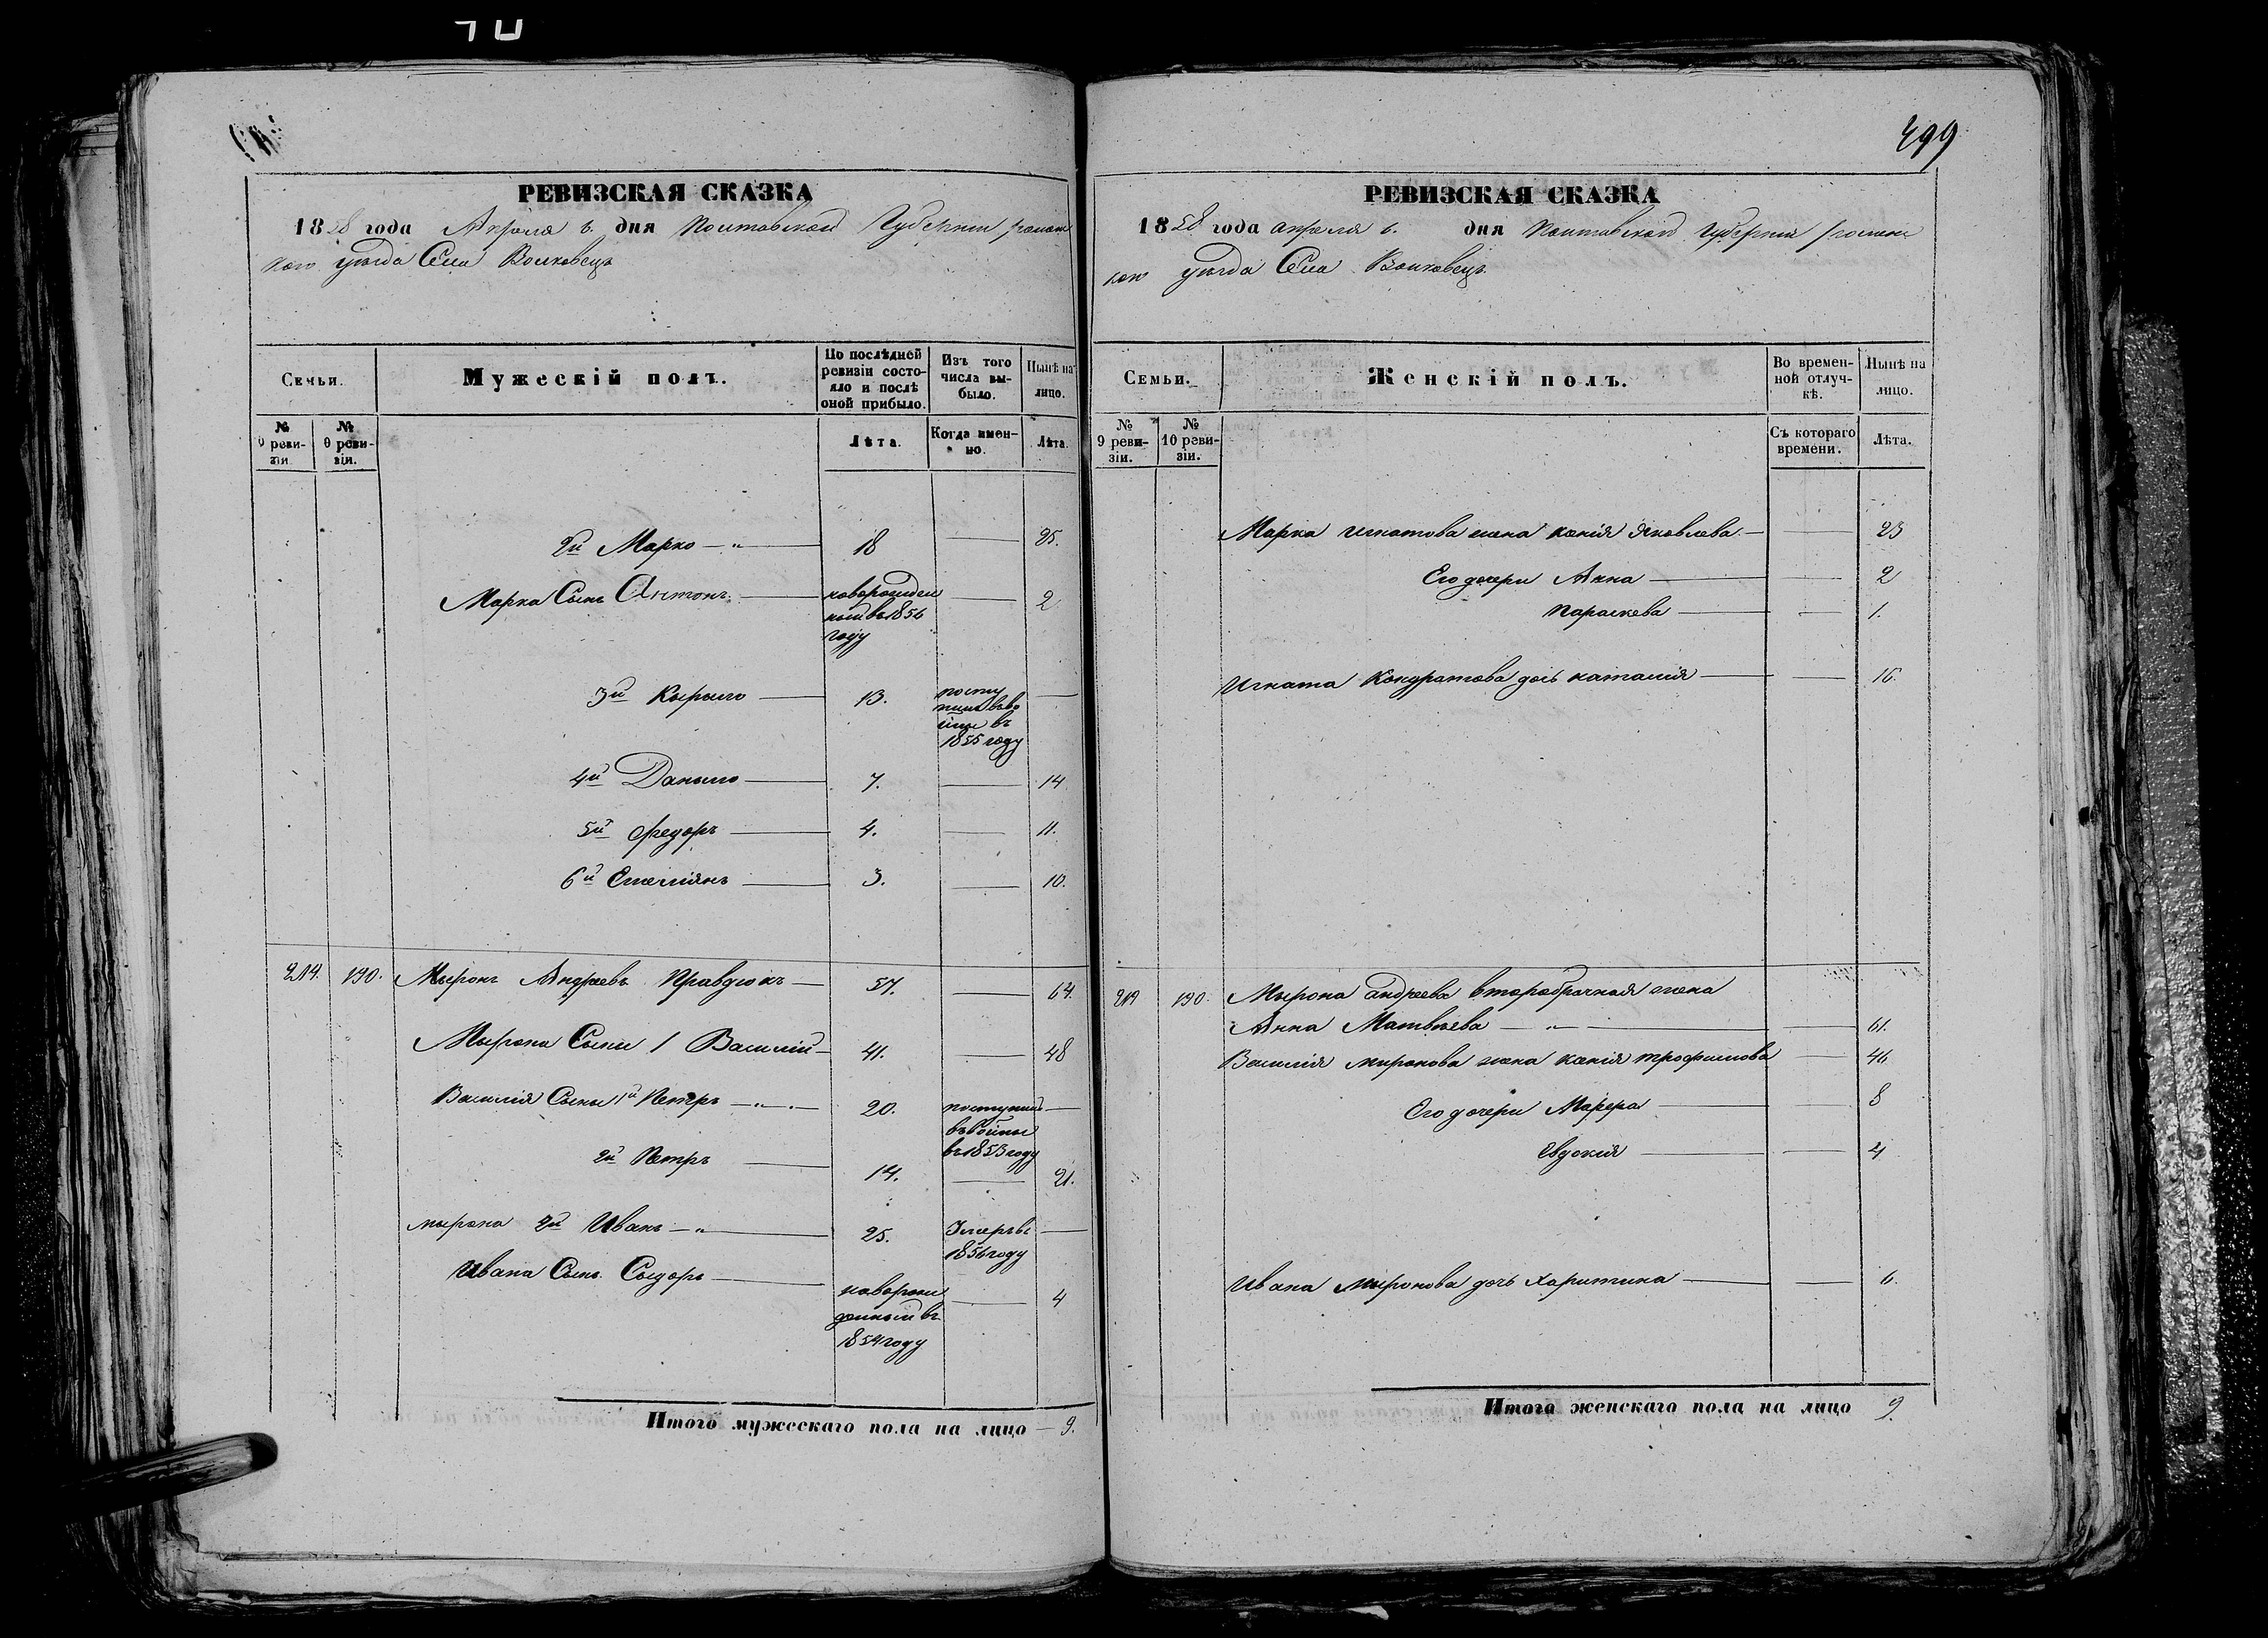 499
РЕВИЗСКАЯ СКАЗКА
1858 года Апреля 6. дня Полтавской Губернии роменс
кого уезда Села Волковецъ
Семьи.
Мужескій полъ.
По послѣдней ревизіи состояло и послѣ оной прибыло.
Изъ того числа выбыло.
Нынѣ на лицо.
№ 9 ревизіи.
№ 0 ревизіи.
Лѣта.
Когда именно.
Лѣта.
2й Марко — „ — 18 — 25.
Марка Сынъ Антонъ — новорожден — 2
ный въ 1856
году
3й Кырыло — 13. посту —
пилъ въ во
йны въ
1855 году
4й Даныло — 7. — 14
5й Федоръ — 4. — 11.
6й Емелiянъ — 3. — 10.
214. 190. Мыронъ Андреевъ Правдюкъ — 57. — 64.
Мырона Сыны 1 Василій — 41. — 48
Василія Сыны 1й Петръ — „ — 20. поступилъ —
въ войны
въ 1853 году
2й Петръ — 14. — 21.
мырона 2й Иванъ — „ — 25. Умеръ въ —
1856 году
Ивана Сынъ Сыдоръ — новорож — 4
денный въ
1854 году
Итого мужескаго пола на лицо — 9.
РЕВИЗСКАЯ СКАЗКА
1858 года апреля 6. дня Полтавской губернии роменс
кого уезда Села Волковецъ
Семьи.
Женскій полъ.
Во временной отлучкѣ.
Нынѣ на лицо.
№ 9 ревизіи.
№ 10 ревизіи.
Съ котораго времени.
Лѣта.
Марка игнатова жена ксенія Яковлева — — 23
Его дочери Анна — — 2
Параскева — — 1.
Игната Кондратова дочь наталія — — 16.
214 190. Мырона андреева второбрачная жена
Анна Матвѣева — „ — — 61.
Василія миронова жена ксенія трофимова — 46
Его дочери — — 8
Евдокія — — 4
Ивана миронова дочь Харитина — — 6.
Итого женскаго пола на лицо 9.